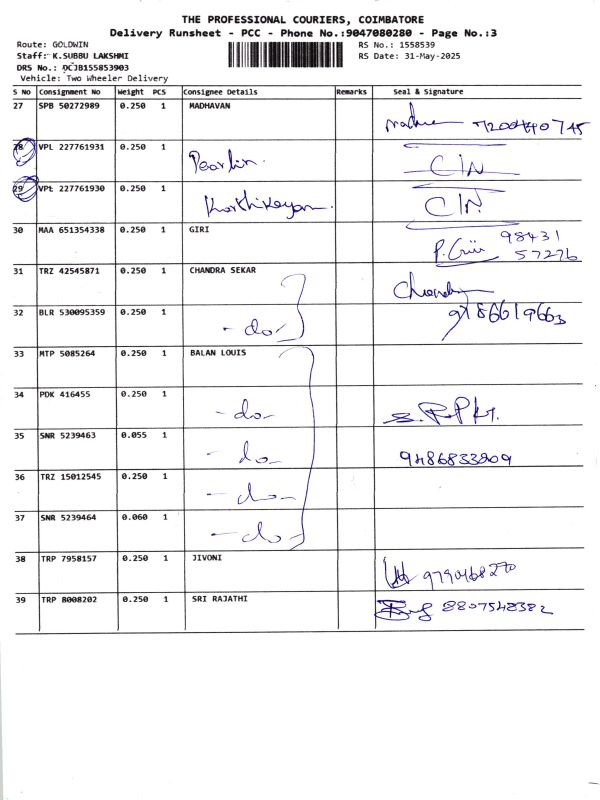 THE PROFESSIONAL COURIERS, COIMBATORE
Delivery Runsheet - PCC - Phone No.:9047080280 - Page No.:3
Route: GOLDWIN
RS No.: 1558539
Staff: K.SUBBU LAKSHMI
RS Date: 31-May-2025
DRS No.: DCJB155853903
Vehicle: Two Wheeler Delivery
S No Consignment No Weight PCS Consignee Details Remarks Seal & Signature
27 SPB 50272989 0.250 1 MADHAVAN
28 VPL 227761931 0.250 1 Pearlin. CIN
29 VPL 227761930 0.250 1 Karthikeyan. CIN.
30 MAA 651354338 0.250 1 GIRI P. Giri 98431
57276
31 TRZ 42545871 0.250 1 CHANDRA SEKAR
32 BLR 530095359 0.250 1 - do -
33 MTP 5085264 0.250 1 BALAN LOUIS
34 PDK 416455 0.250 1 - do -
35 SNR 5239463 0.055 1 - do - 9486833909
36 TRZ 15012545 0.250 1 - do -
37 SNR 5239464 0.060 1 - do -
38 TRP 7958157 0.250 1 JIVONI 9790468270
39 TRP 8008202 0.250 1 SRI RAJATHI 8807548382